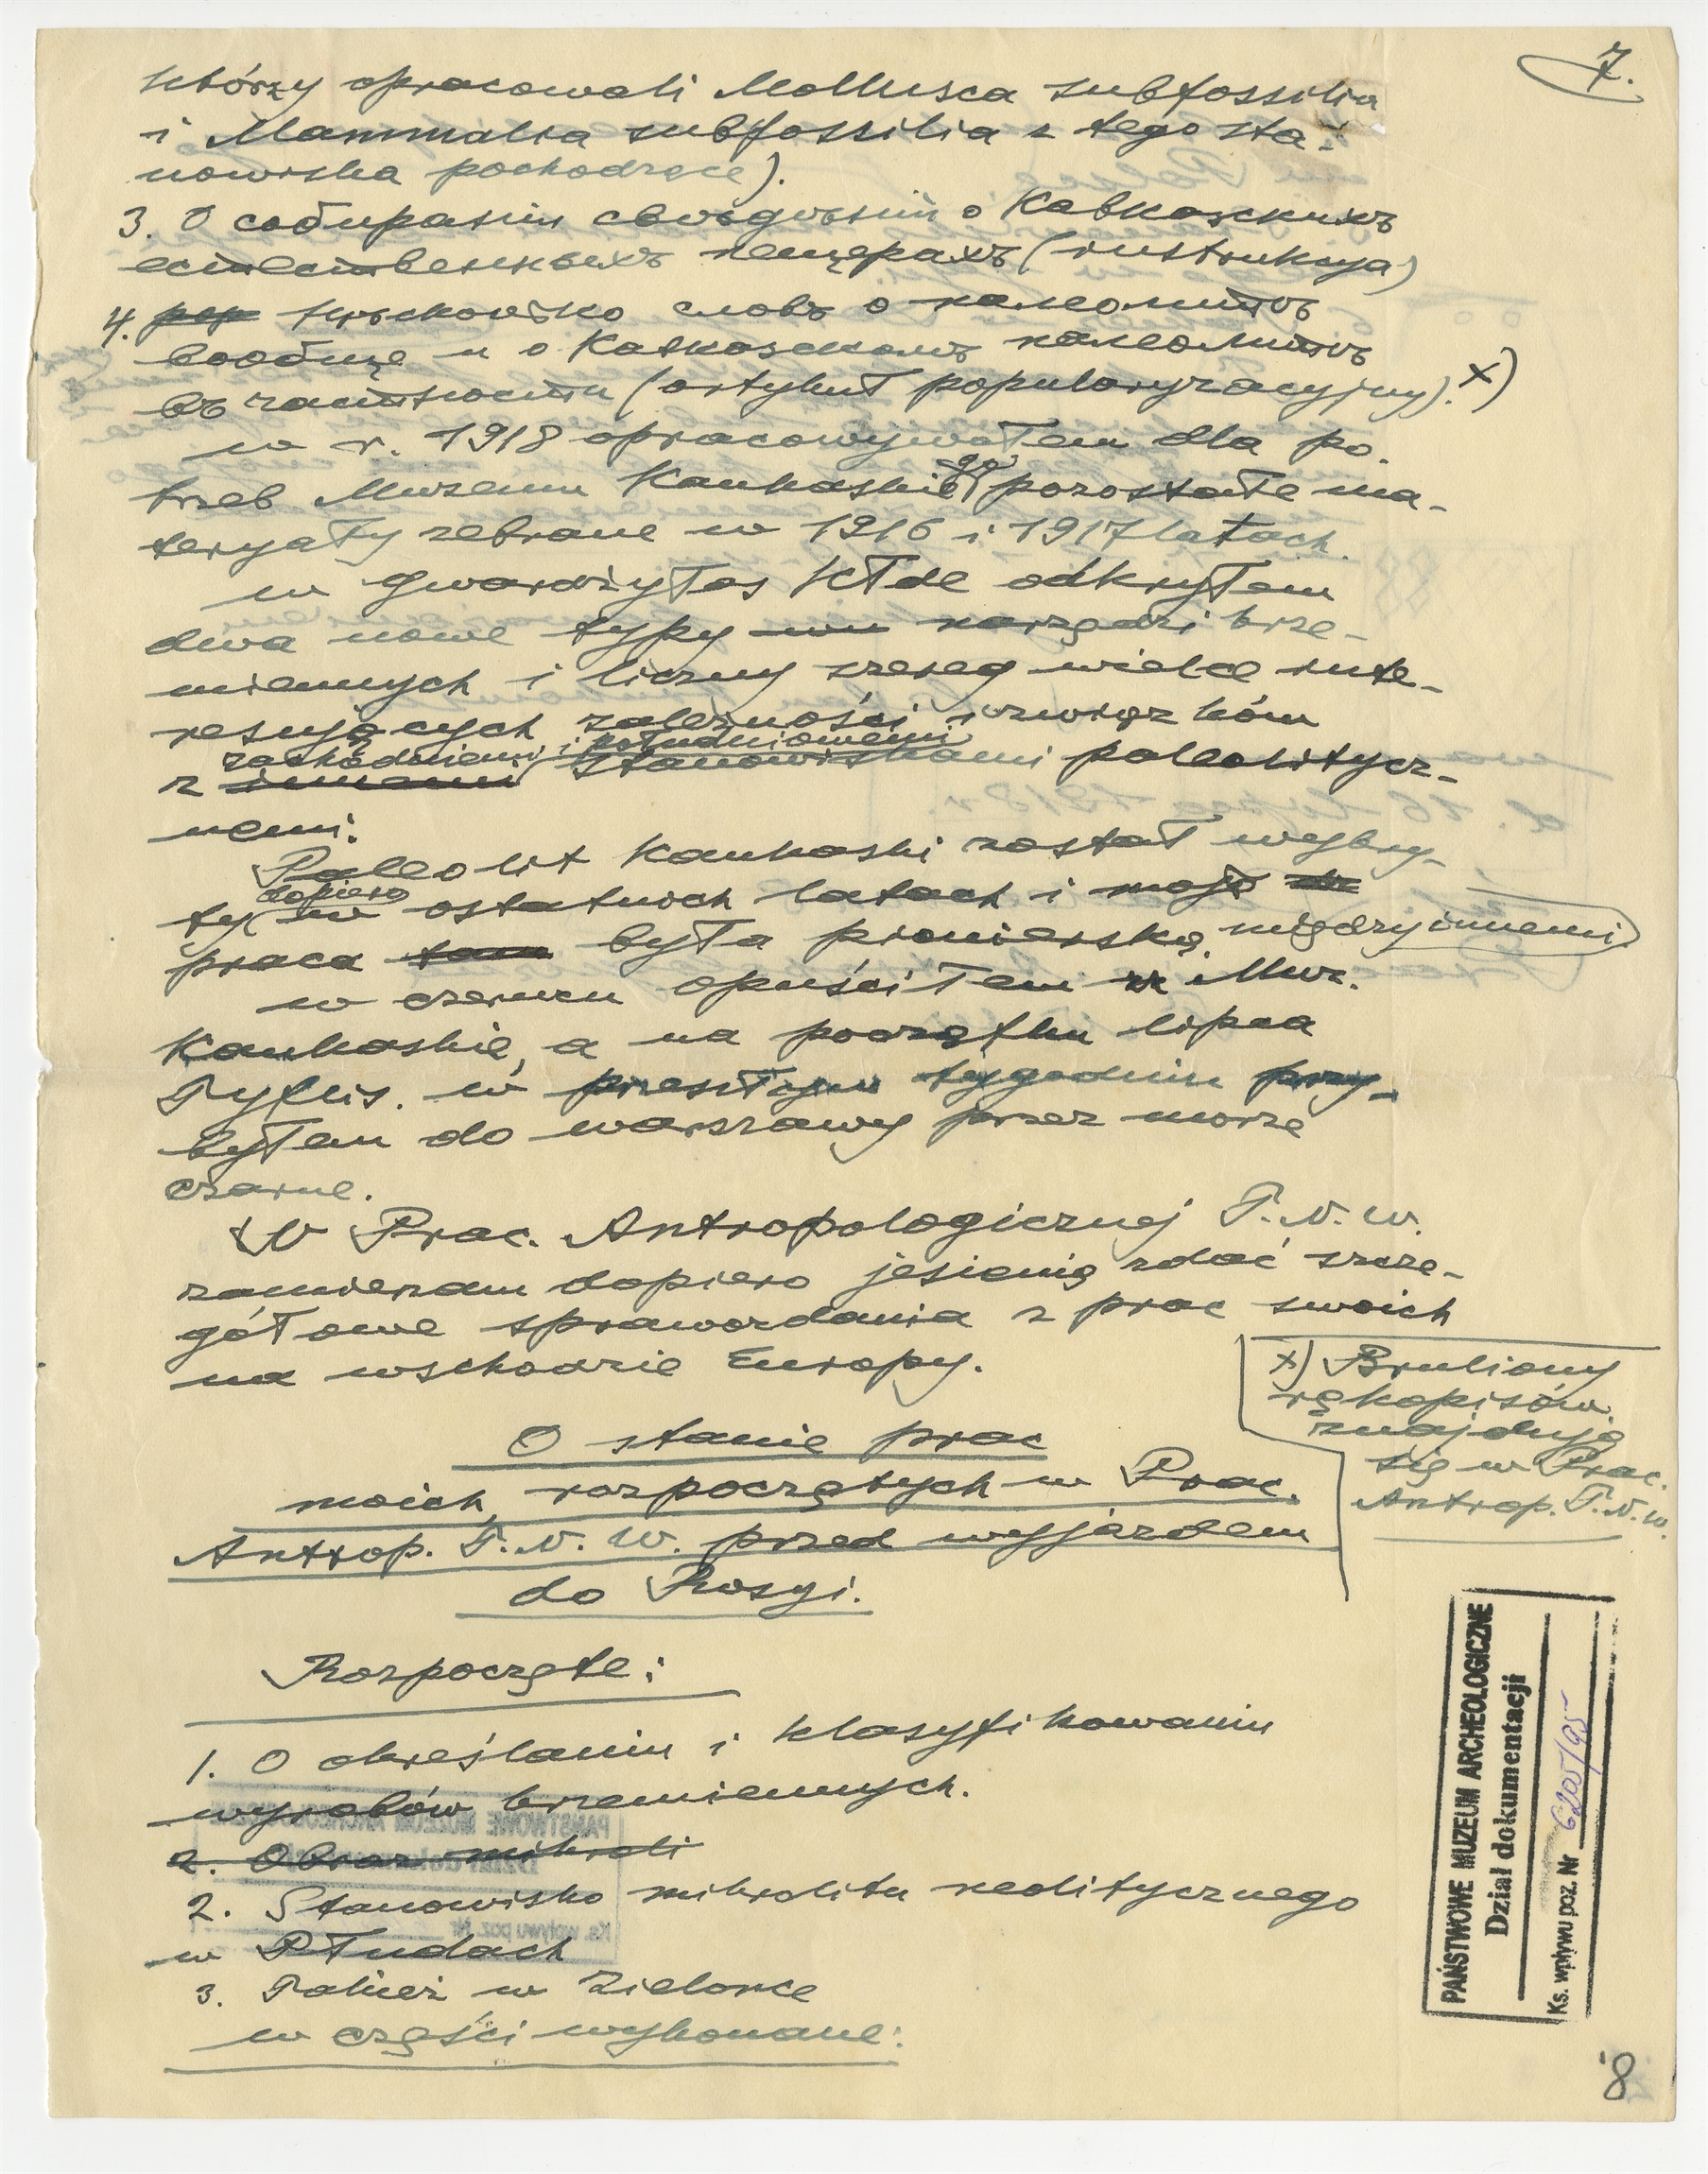 7.
którzy opracowali Mollusca subfossilia
i Mammalia subfossilia z tego sta-
nowiska pochodzące).
3. О собиранiи свѣдѣнiй о Кавказскихъ
естественныхъ пещерахъ (instrukcja)
4. нѣсколько словъ о палеолитѣ
вообще и о Кавказскомъ палеолитѣ
въ частности (artykuł popularyzacyjny). x)
w r. 1918 opracowywałem dla po-
trzeb Muzeum Kaukaskiego pozostałe ma-
teryały zebrane w 1916 i 1917 latach.
w Gwardżyłas Kłde odkryłem
dwa nowe typy narzędzi krze-
miennych i liczny szereg wielce inte-
resujących zależności i związków
zachodniemi i południowemi
z innemi stanowiskami paleolitycz-
nemi.
Paleolit Kaukaski został wykry-
ty dopiero w ostatnich latach i moja
praca była pionierską między innemi
w czerwcu opuściłem Muz.
Kaukaskie, a na początku lipca
Tyflis. w przeszłym tygodniu przy-
byłem do warszawy przez morze
czarne.
W Prac. Antropologicznej T. N. W.
zamierzam dopiero jesienią zdać szcze-
gółowe sprawozdania z prac swoich
na wschodzie Europy.
x) Bruliony
rękopisów
znajdują
się w Prac.
Antrop. T. N. W.
O stanie prac
moich, rozpoczętych w Prac.
Antrop. T. N. W. przed wyjazdem
do Rosyi.
Rozpoczęte:
1. O określaniu i klasyfikowaniu
wyrobów krzemiennych.
2. Obraz mikroli
2. Stanowisko mikrolitu neolitycznego
w Płudach
3. Takież w Zielonce
w części wykonane:
PAŃSTWOWE MUZEUM ARCHEOLOGICZNE
Dział dokumentacji
Ks. wpływu poz. Nr 6205/95
8